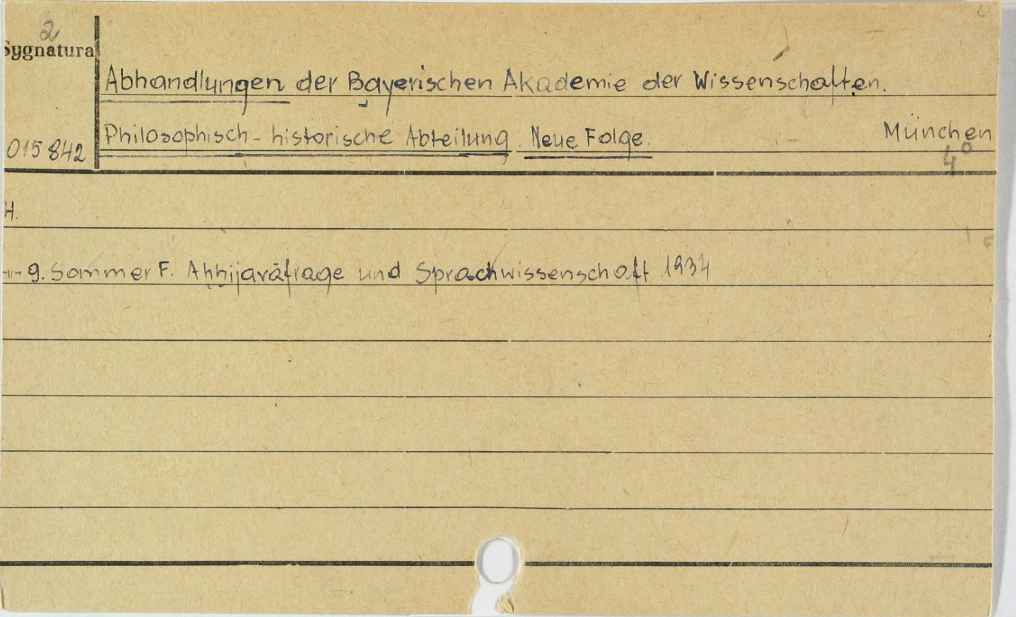 2
Sygnatura
Abhandlungen der Bayerischen Akademie der Wissenschaften.
Philosophisch-historische Abteilung. Neue Folge. München
015842
4°
H.
9. Sommer F. Ahhijaváfrage und Sprachwissenschaft 1934